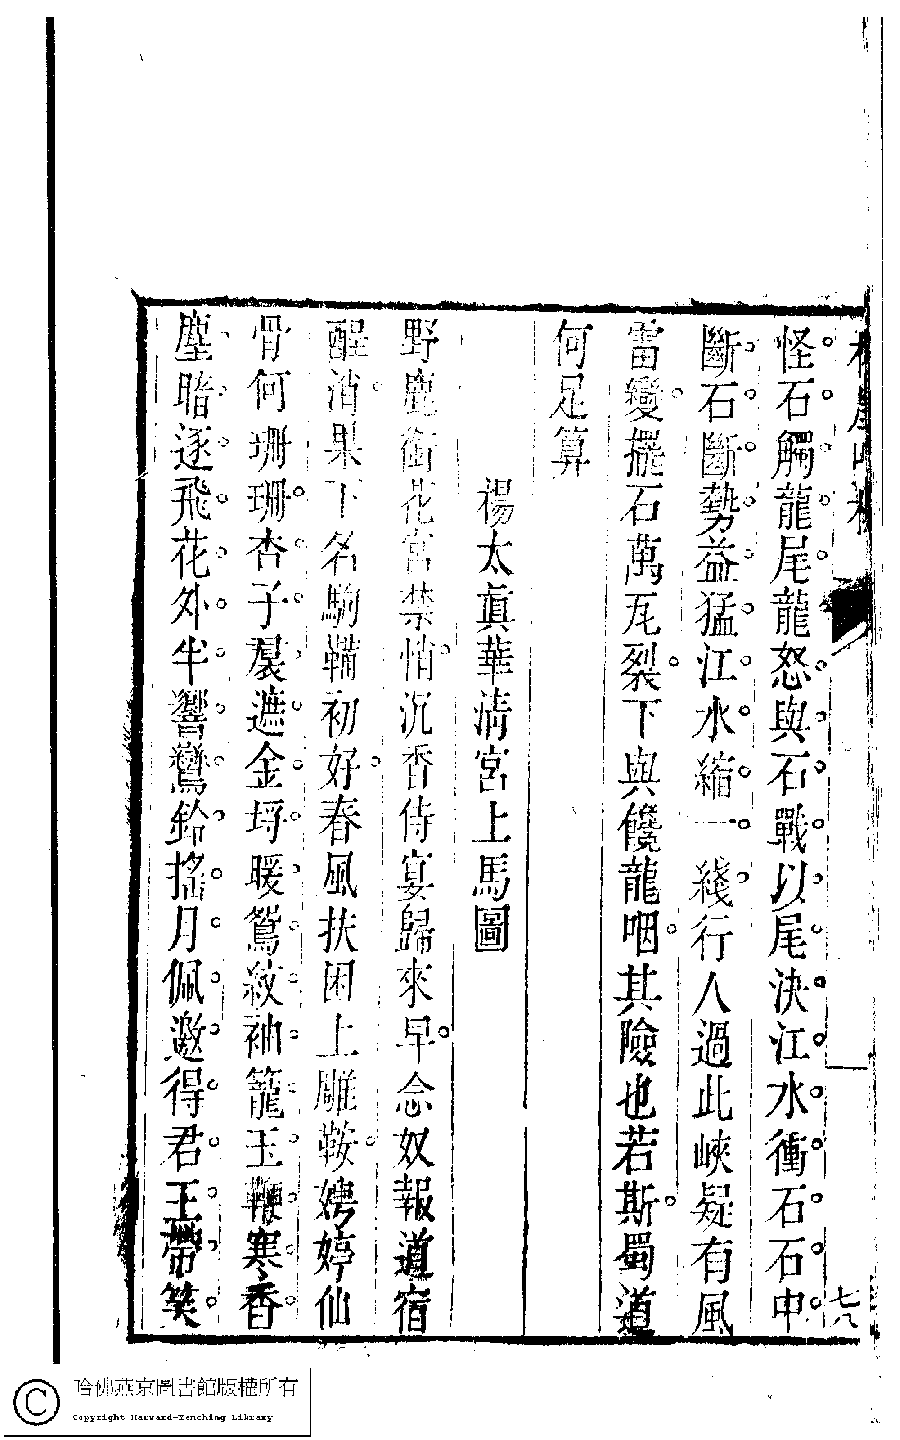 七八
怪石觸龍尾龍怒與石戰以尾決江水衝石石中
斷石斷勢益猛江水縮一綫行人過此峽疑有風
雷變擺石萬瓦裂下與饞龍咽其險也若斯蜀道
何足算
楊太眞華清宮上馬圖
野鹿銜花宮禁悄沉香侍宴歸來早念奴報道宿
醒消果下名駒鞴初好春風扶困上雕鞍娉婷仙
骨何珊珊杏子裠遮金埒暖鴛紋袖籠玉鞭寒香
塵暗逐飛花外半響鸞鈴搖月佩邀得君王帶笑
哈佛燕京圖書館版權所有
Copyright Harvard-Yenching Library